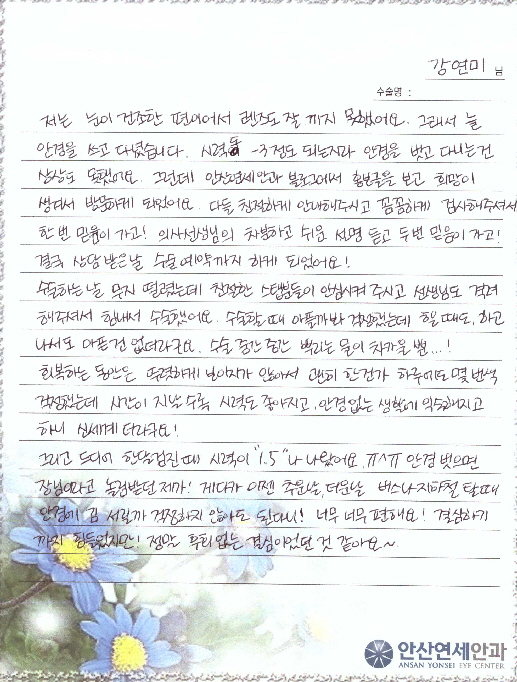 강연미 님
수술명 :
저는 눈이 건조한 편이어서 렌즈도 잘 끼지 못했어요. 그래서 늘
안경을 쓰고 다녔습니다. 시력도 -3정도 되는지라 안경을 벗고 다니는건
상상도 못했어요. 그런데 안산연세안과 블로그에서 홍보글을 보고 희망이
생겨서 방문하게 되었어요. 다들 친절하게 안내해주시고 꼼꼼하게 검사해주셔서
한 번 믿음이 가고! 의사선생님의 차분하고 쉬운 설명 듣고 두번 믿음이 가고!
결국 상담 받은날 수술예약까지 하게 되었어요!
수술하는 날 무지 떨렸는데 친절한 스텝분들이 안심시켜 주시고 선생님도 격려
해주셔서 힘내서 수술했어요. 수술할 때 아플까봐 걱정했는데 할 때도, 하고
나서도 아픈건 없더라구요. 수술 중간 중간 뿌리는 물이 차가울 뿐...!
회복하는 동안은 뚜렷하게 보이지가 않아서 괜히 한건가 하루에도 몇 번씩
걱정했는데 시간이 지날수록 시력도 좋아지고, 안경없는 생활에 익숙해지고
하니 신세계더라구요!
그리고 드디어 한달검진 때 시력이 "1.5"나 나왔어요. ㅠ^ㅠ 안경 벗으면
장님이라고 놀림받던 제가! 게다가 이젠 추운날, 더운날 버스나 지하철 탈 때
안경에 김 서릴까 걱정하지 않아도 된다니! 너무 너무 편해요! 결심하기
까지 힘들었지만! 정말 후회없는 결심이었던 것 같아요~
안산연세안과
ANSAN YONSEI EYE CENTER